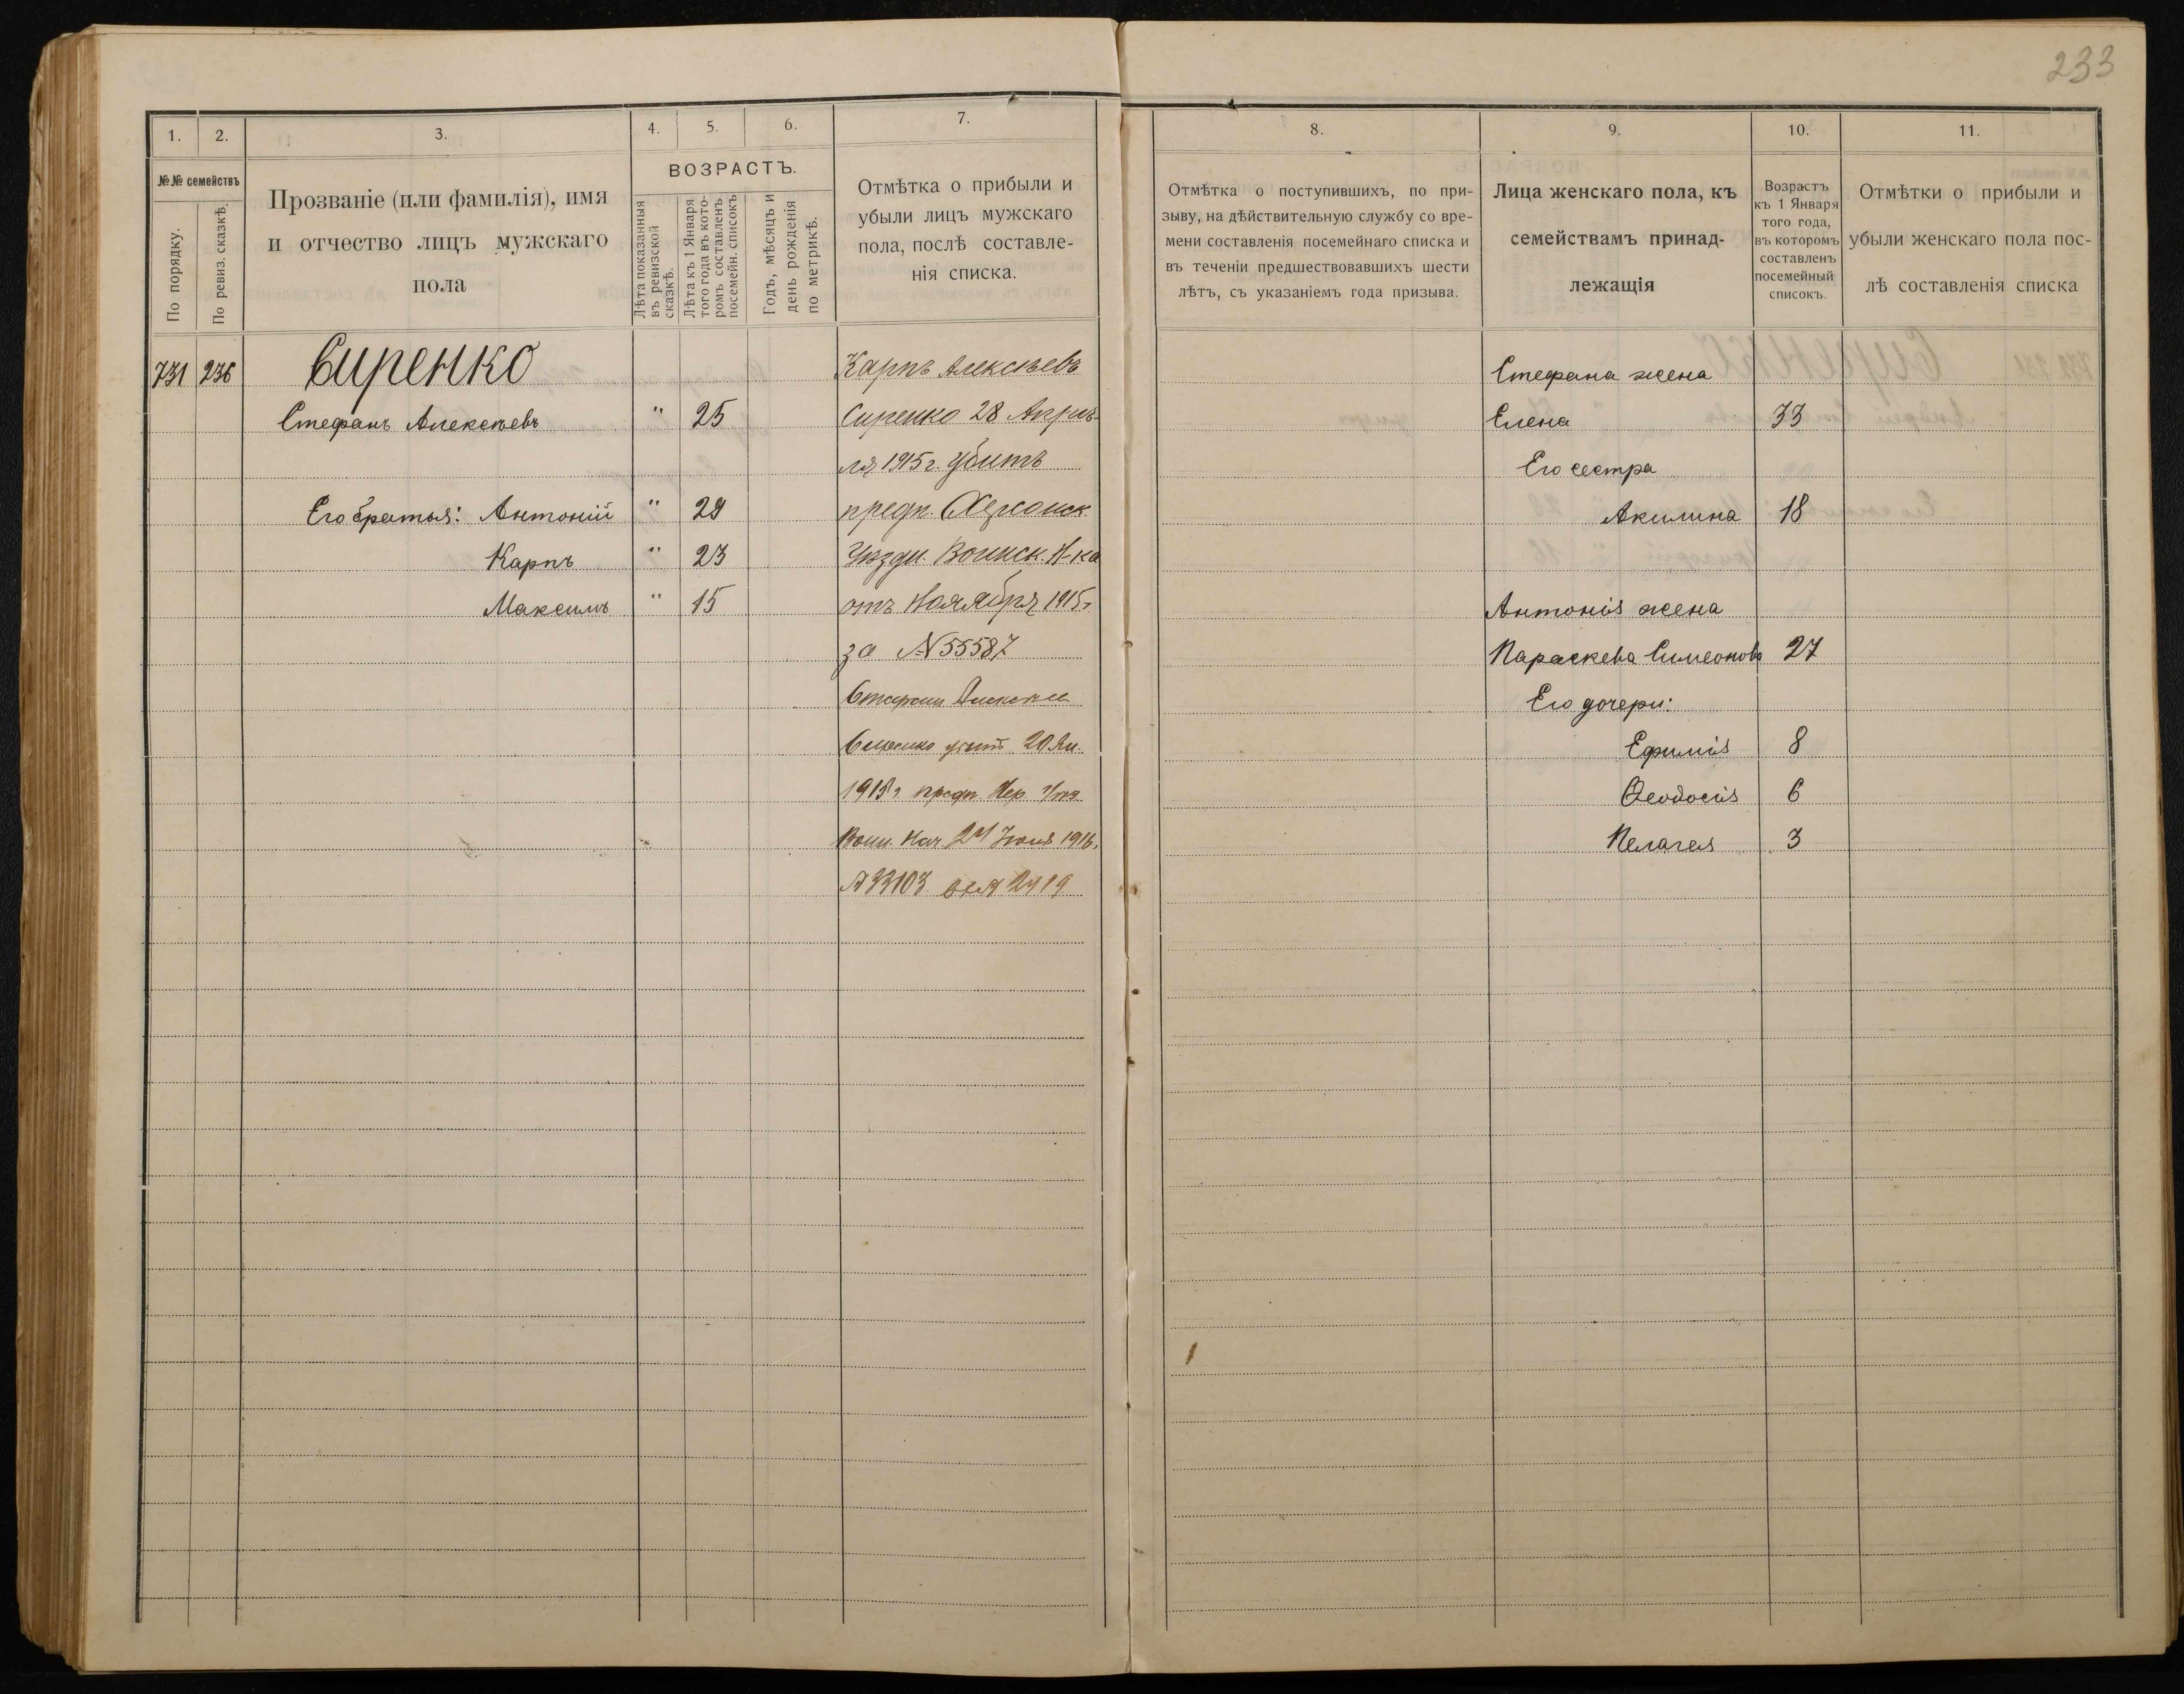 233
1.
2.
3.
4.
5.
6.
7.
№№ семействъ
По порядку.
По ревиз. сказкѣ.
Прозваніе (или фамилія), имя
и отчество лицъ мужскаго
пола
ВОЗРАСТЪ.
Лѣта показанныя
въ ревизской
сказкѣ.
Лѣта къ 1 Января
того года въ кото-
ромъ составленъ
посемейн. списокъ
Годъ, мѣсяцъ и
день рожденія
по метрикѣ.
Отмѣтка о прибыли и
убыли лицъ мужскаго
пола, послѣ составле-
нія списка.
731 236 Сиренко
Стефанъ Алексѣевъ " 25
Его братья: Антоній " 29
Карпъ " 23
Максимъ " 15
Карпъ Алексѣевъ
Сиренко 28 Апрѣ-
ля 1915 г. убитъ
предп. Херсонск.
Уѣздн. Воинск. Н-ка
отъ Ноября 1915 г.
за №55587
Сиренко 20 Ян.
1915 г. предп. Хер.
Воин. Нач. 24 1916.
№33103
8.
9.
10.
11.
Отмѣтка о поступившихъ, по при-
зыву, на дѣйствительную службу со вре-
мени составленія посемейнаго списка и
въ теченіи предшествовавшихъ шести
лѣтъ, съ указаніемъ года призыва.
Лица женскаго пола, къ
семействамъ принад-
лежащія
Возрастъ
къ 1 Января
того года,
въ которомъ
составленъ
посемейный
списокъ.
Отмѣтки о прибыли и
убыли женскаго пола пос-
лѣ составленія списка
Стефана жена
Елена 33
Его сестра
Акилина 18
Антонія жена
Параскева Симеонова 27
Его дочери:
Ефимія 8
Ѳеодосія 6
Пелагея 3